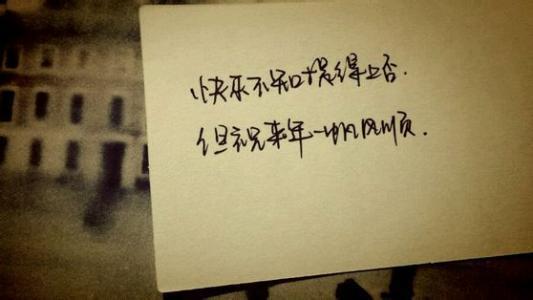 快乐不知摸得上否.
但祝来年一帆风顺.